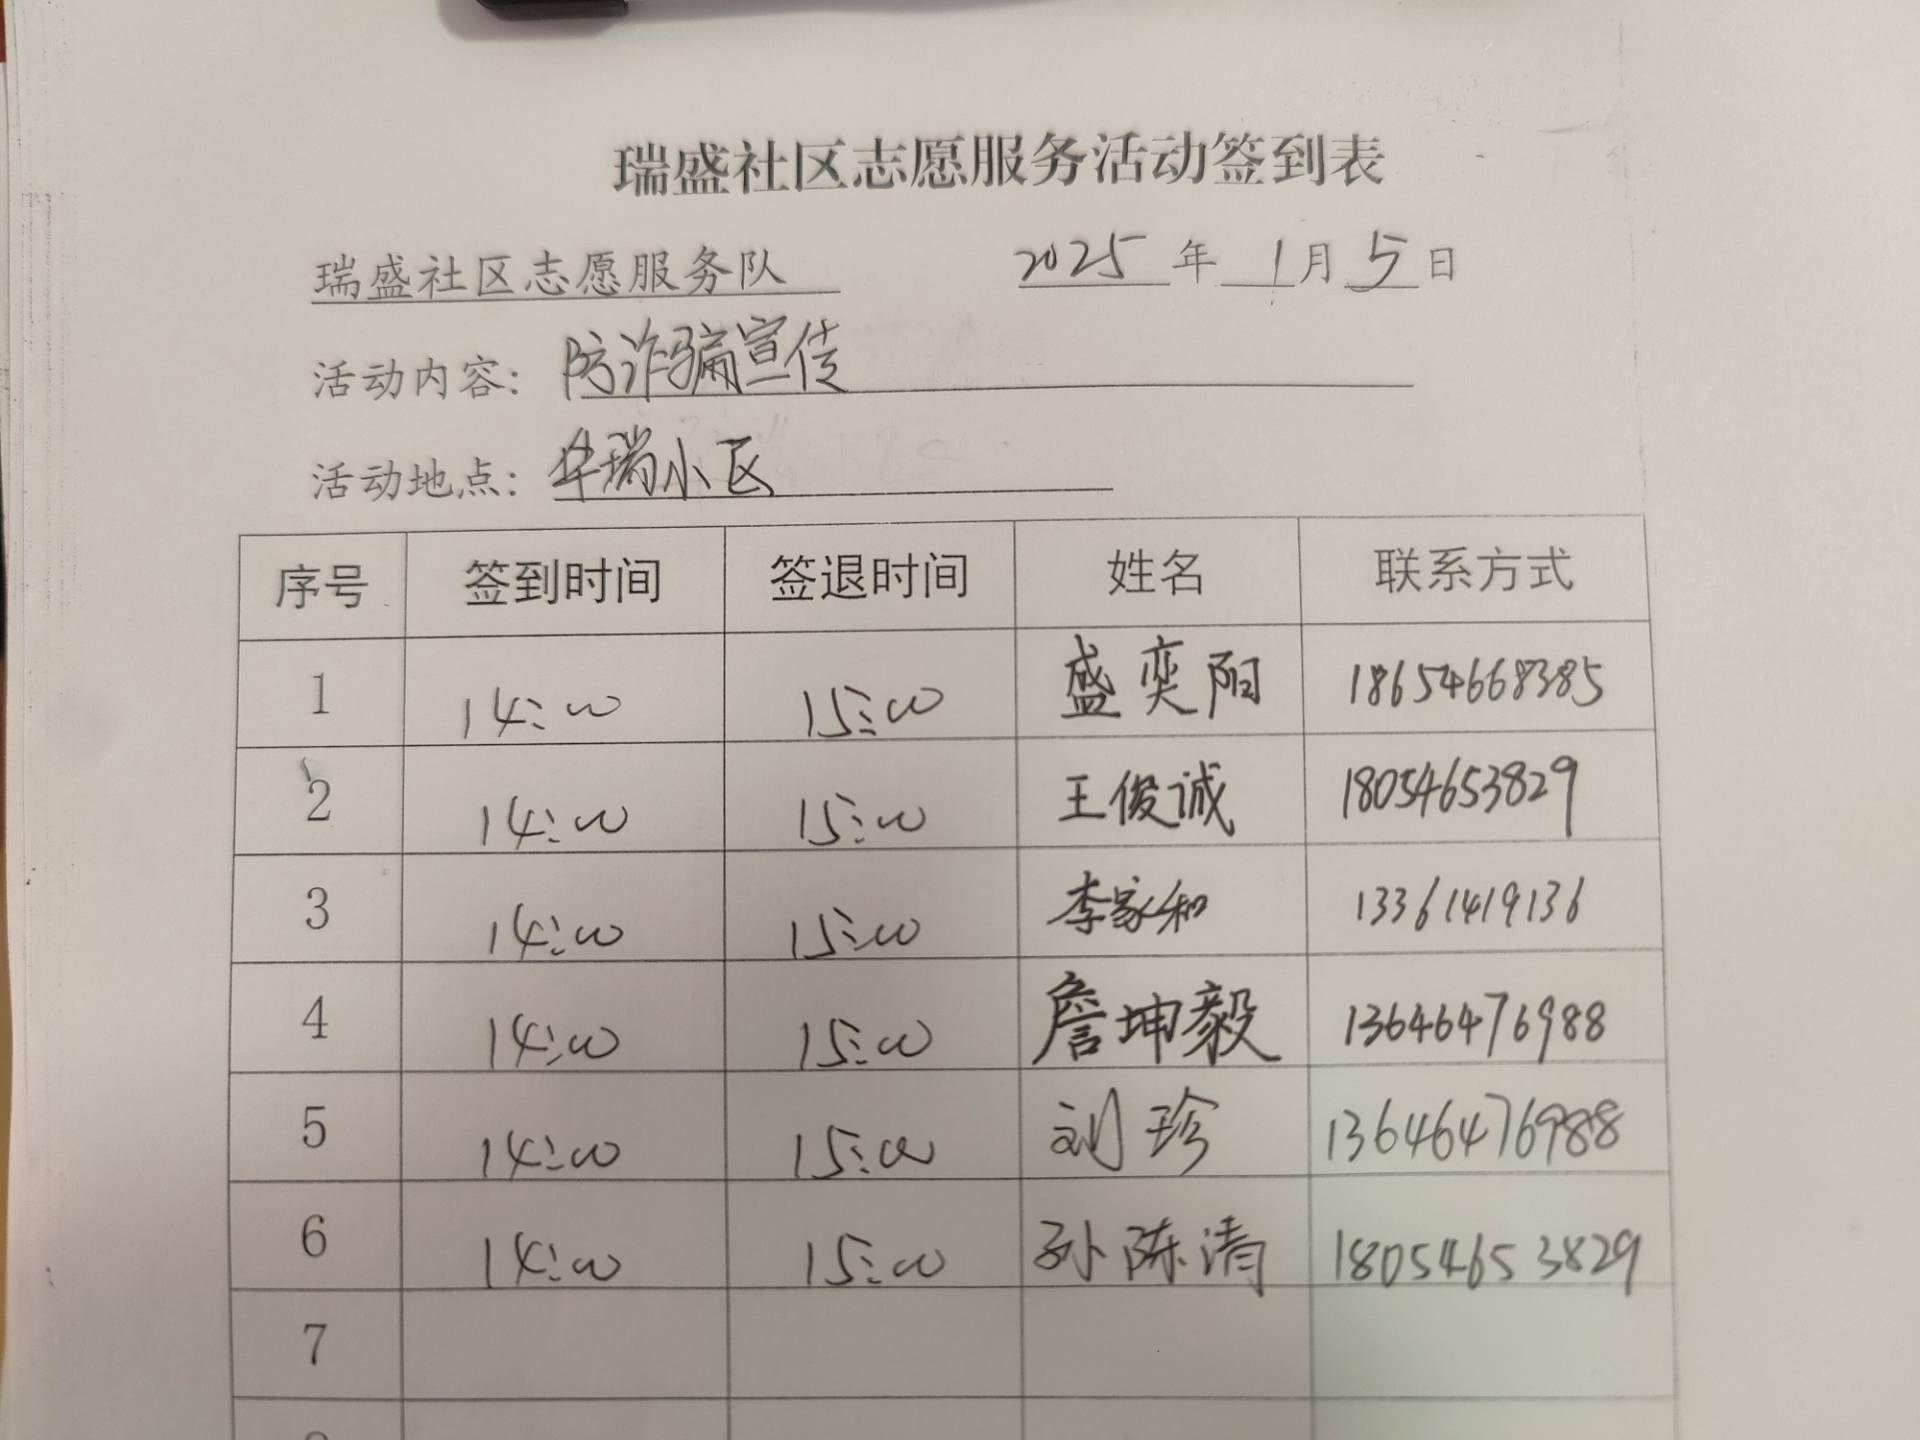 瑞盛社区志愿服务活动签到表
瑞盛社区志愿服务队 2025年1月5日
活动内容：防诈骗宣传
活动地点：华瑞小区
序号 签到时间 签退时间 姓名 联系方式
1 14:00 15:00 盛奕阳 18654668385
2 14:00 15:00 王俊诚 18054653829
3 14:00 15:00 李家和 13361419136
4 14:00 15:00 詹坤毅 13646476988
5 14:00 15:00 刘珍 13646476988
6 14:00 15:00 孙陈清 18054653829
7